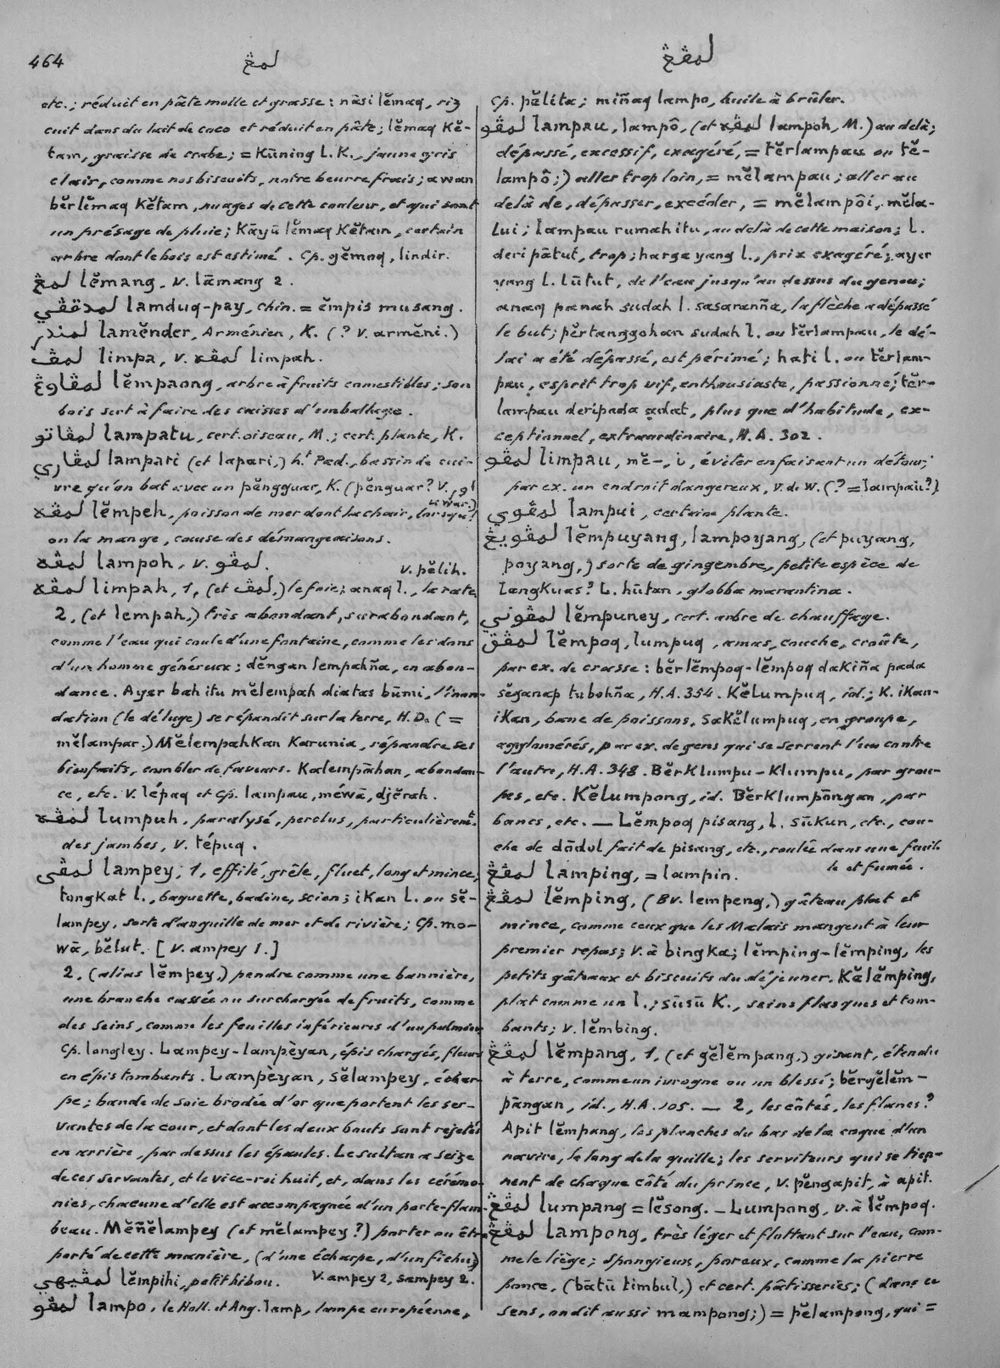 464
لمڠ
لمڤڠ
etc.; réduit en pâte molle et grasse: nàsi lĕmaq, riz
cuit dans du lait de coco et réduit en pâte; lĕmaq Kĕ-
tam, graisse de crabe; = Kūning L. K., jaune gris
clair, comme nos biscuits, notre beurre frais; awan
bĕrlĕmaq Kĕtam, nuages de cette couleur, et qui sont
un présage de pluie; Kāyū lĕmaq Kĕtam, certain
arbre dont le bois est estimé. Cp. gĕmoq, lindir.
لمڠ lĕmang, v. lāmang 2.
lamduq-pay, chin. = ĕmpis musang.
لمندر lamĕnder, Arménien, K. (? V. armĕni.)
لمڤ limpa, v. لمڤه limpah.
لمڤاوڠ lĕmpaong, arbre à fruits comestibles; son
bois sert à faire des caisses d'emballage.
لمڤاتو lampatu, cert. oiseau, M.; cert. plante, K.
لمڤاري lampari (et lapari,) ht Pad., bassin de cui-
vre qu'on bat avec un pĕngguar, K. (pĕnguar? V.
لمڤه lĕmpeh, poisson de mer dont la chair, lorsque
on la mange, cause des démangeaisons.
لمڤه lampoh, v. لمڤو. v. pĕlih.
لمڤه limpah, 1, (et لمڤ,) le foie; anaq l., la rate
2, (et lempah,) très abondant, surabondant,
comme l'eau qui coule d'une fontaine, comme les dons
d'un homme généreux; dĕngan lempahña, en abon-
dance. Ayer bah itu mĕlempah diatas būmi, l'inon-
dation (le déluge) se répandit sur la terre, H.D. (=
mĕlampar.) MĕlempahKan Karunia, répandre ses
bienfaits, combler de faveurs. Kalempāhan, abondan-
ce, etc. V. lépaq et Cp. lampau, méwā, djĕrah.
لمڤه lumpuh, paralysé, perclus, particulièremt
des jambes, V. tépuq.
لمڤي lampey, 1, effilé, grêle, fluet, long et mince,
tongKat l., baguette, badine, scion; iKan l. ou sĕ-
lampey, sorte d'anguille de mer et de rivière; Cp. mo-
wā, bĕlut. [V. ampey 1.]
2, (alias lĕmpey,) pendre comme une bannière,
une branche cassée ou surchargée de fruits, comme
des seins, comme les feuilles inférieures d'un palmier
Cp. longley. Lampey-lampèyan, épis chargés, fleurs
en épis tombants. Lampèyan, sĕlampey, échar-
pe; bande de soie brodée d'or que portent les ser-
vantes de la cour, et dont les deux bouts sont rejetés
en arrière, par dessus les épaules. Le sultan a seize
de ces servantes, et le vice-roi huit, et, dans les cérémo-
nies, chacune d'elle est accompagnée d'un porte-flam-
beau. Mĕñĕlampey (et mĕlampey?) porter ou être
porté de cette manière, (d'une écharpe, d'un fichu;)
لمڤيهي lĕmpihi, petit hibou. V. ampey 2, sampey 2.
لمڤو lampo, le Holl. et Ang. lamp, lampe européenne,
Cp. pĕlita; miñaq lampo, huile à brûler.
لمڤو lampau, lampô, (et لمڤه lampoh, M.) au delà;
dépassé, excessif, exagéré, = tĕrlampau ou tĕ-
lampô;) aller trop loin, = mĕlampau; aller au
delà de, dépasser, excéder, = mĕlampôi, mĕla-
lui; lampau rumah itu, au delà de cette maison; l.
deri pātut, trop; harga yang l., prix exagéré; ayer
yang l. lūtut, de l'eau jusqu'au dessus du genou;
anaq panah sudah l. sasaranña, la flèche a dépassé
le but; pĕrtanggohan sudah l. ou tĕrlampau, le dé-
lai a été dépassé, est périmé; hati l. ou tĕrlam-
pau, esprit trop vif, enthousiaste, passionné; tĕr-
lampau deripada ạdat, plus que d'habitude, ex-
ceptionnel, extraordinaire, H.A. 302.
لمڤو limpau, mĕ-, i, éviter en faisant un détour,
par ex. un endroit dangereux, V. d. W. (? = lampau?)
لمڤوي lampui, certaine plante.
لمڤويڠ lĕmpuyang, lampoyang, (et puyang,
poyang,) sorte de gingembre, petite espèce de
langKuas? L. hūtan, globba marantina.
لمڤوني lĕmpuney, cert. arbre de chauffage.
لمڤق lĕmpoq, lumpuq, amas, couche, croûte,
par ex. de crasse: bĕrlĕmpoq-lĕmpoq daKiña pada
sĕganap tubohña, H.A. 354. Kĕlumpuq, id.; K. iKan-
iKan, banc de poissons, SaKĕlumpuq, en groupe,
agglomérés, par ex. de gens qui se serrent l'un contre
l'autre, H.A. 348. BĕrKlumpu-Klumpu, par grou-
pes, etc. Kĕlumpong, id. BĕrKlumpōngan, par
bancs, etc. — Lĕmpoq pisang, L. sūKun, etc., cou-
che de dōdol fait de pisang, etc., roulée dans une feuil-
le et fumée.
لمڤڠ lamping, = lampin.
لمڤڠ lĕmping, (Bv. lempeng,) gâteau plat et
mince, comme ceux que les Malais mangent à leur
premier repas; V. à bingKa; lĕmping-lĕmping, les
petits gâteaux et biscuits du déjeuner. Kĕlĕmping,
plat comme un l.; sūsū K., seins flasques et tom-
bants; V. lĕmbing.
لمڤڠ lĕmpang, 1, (et gĕlĕmpang,) gisant, étendu
à terre, comme un ivrogne ou un blessé; bĕrgĕlĕm-
pāngan, id., H.A. 105. — 2, les côtés, les flancs?
Apit lĕmpang, les planches du bas de la coque d'un
navire, le long de la quille; les serviteurs qui se tien-
nent de chaque côté du prince, V. pĕngapit, à apit.
لمڤڠ lumpang = lĕsong. – Lumpong, v. à lĕmpoq.
لمڤڠ lampong, très léger et flottant sur l'eau, com-
me le liège; spongieux, poreux, comme la pierre
ponce, (bātū timbul,) et cert. pâtisseries; (dans ce
sens, on dit aussi mampong;) = pĕlampong, qui =